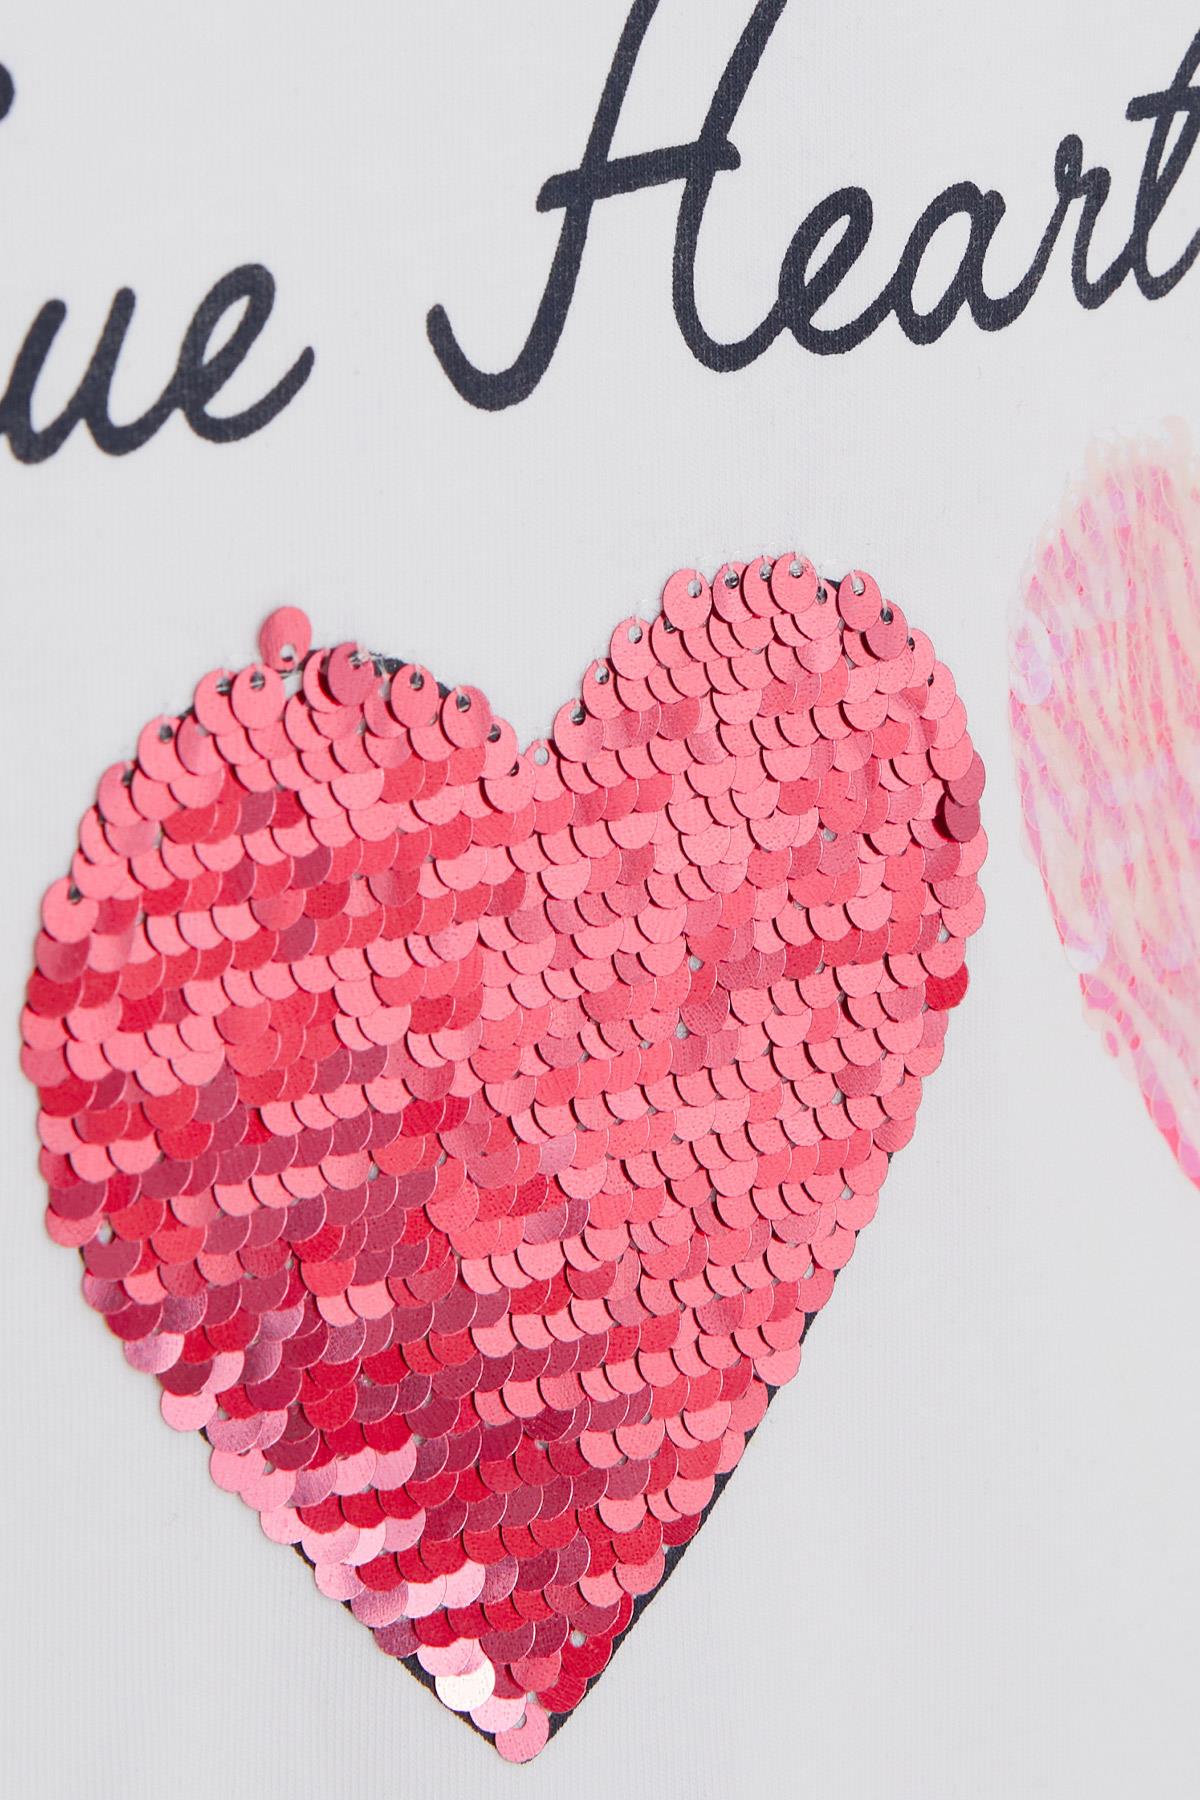 ue Heart